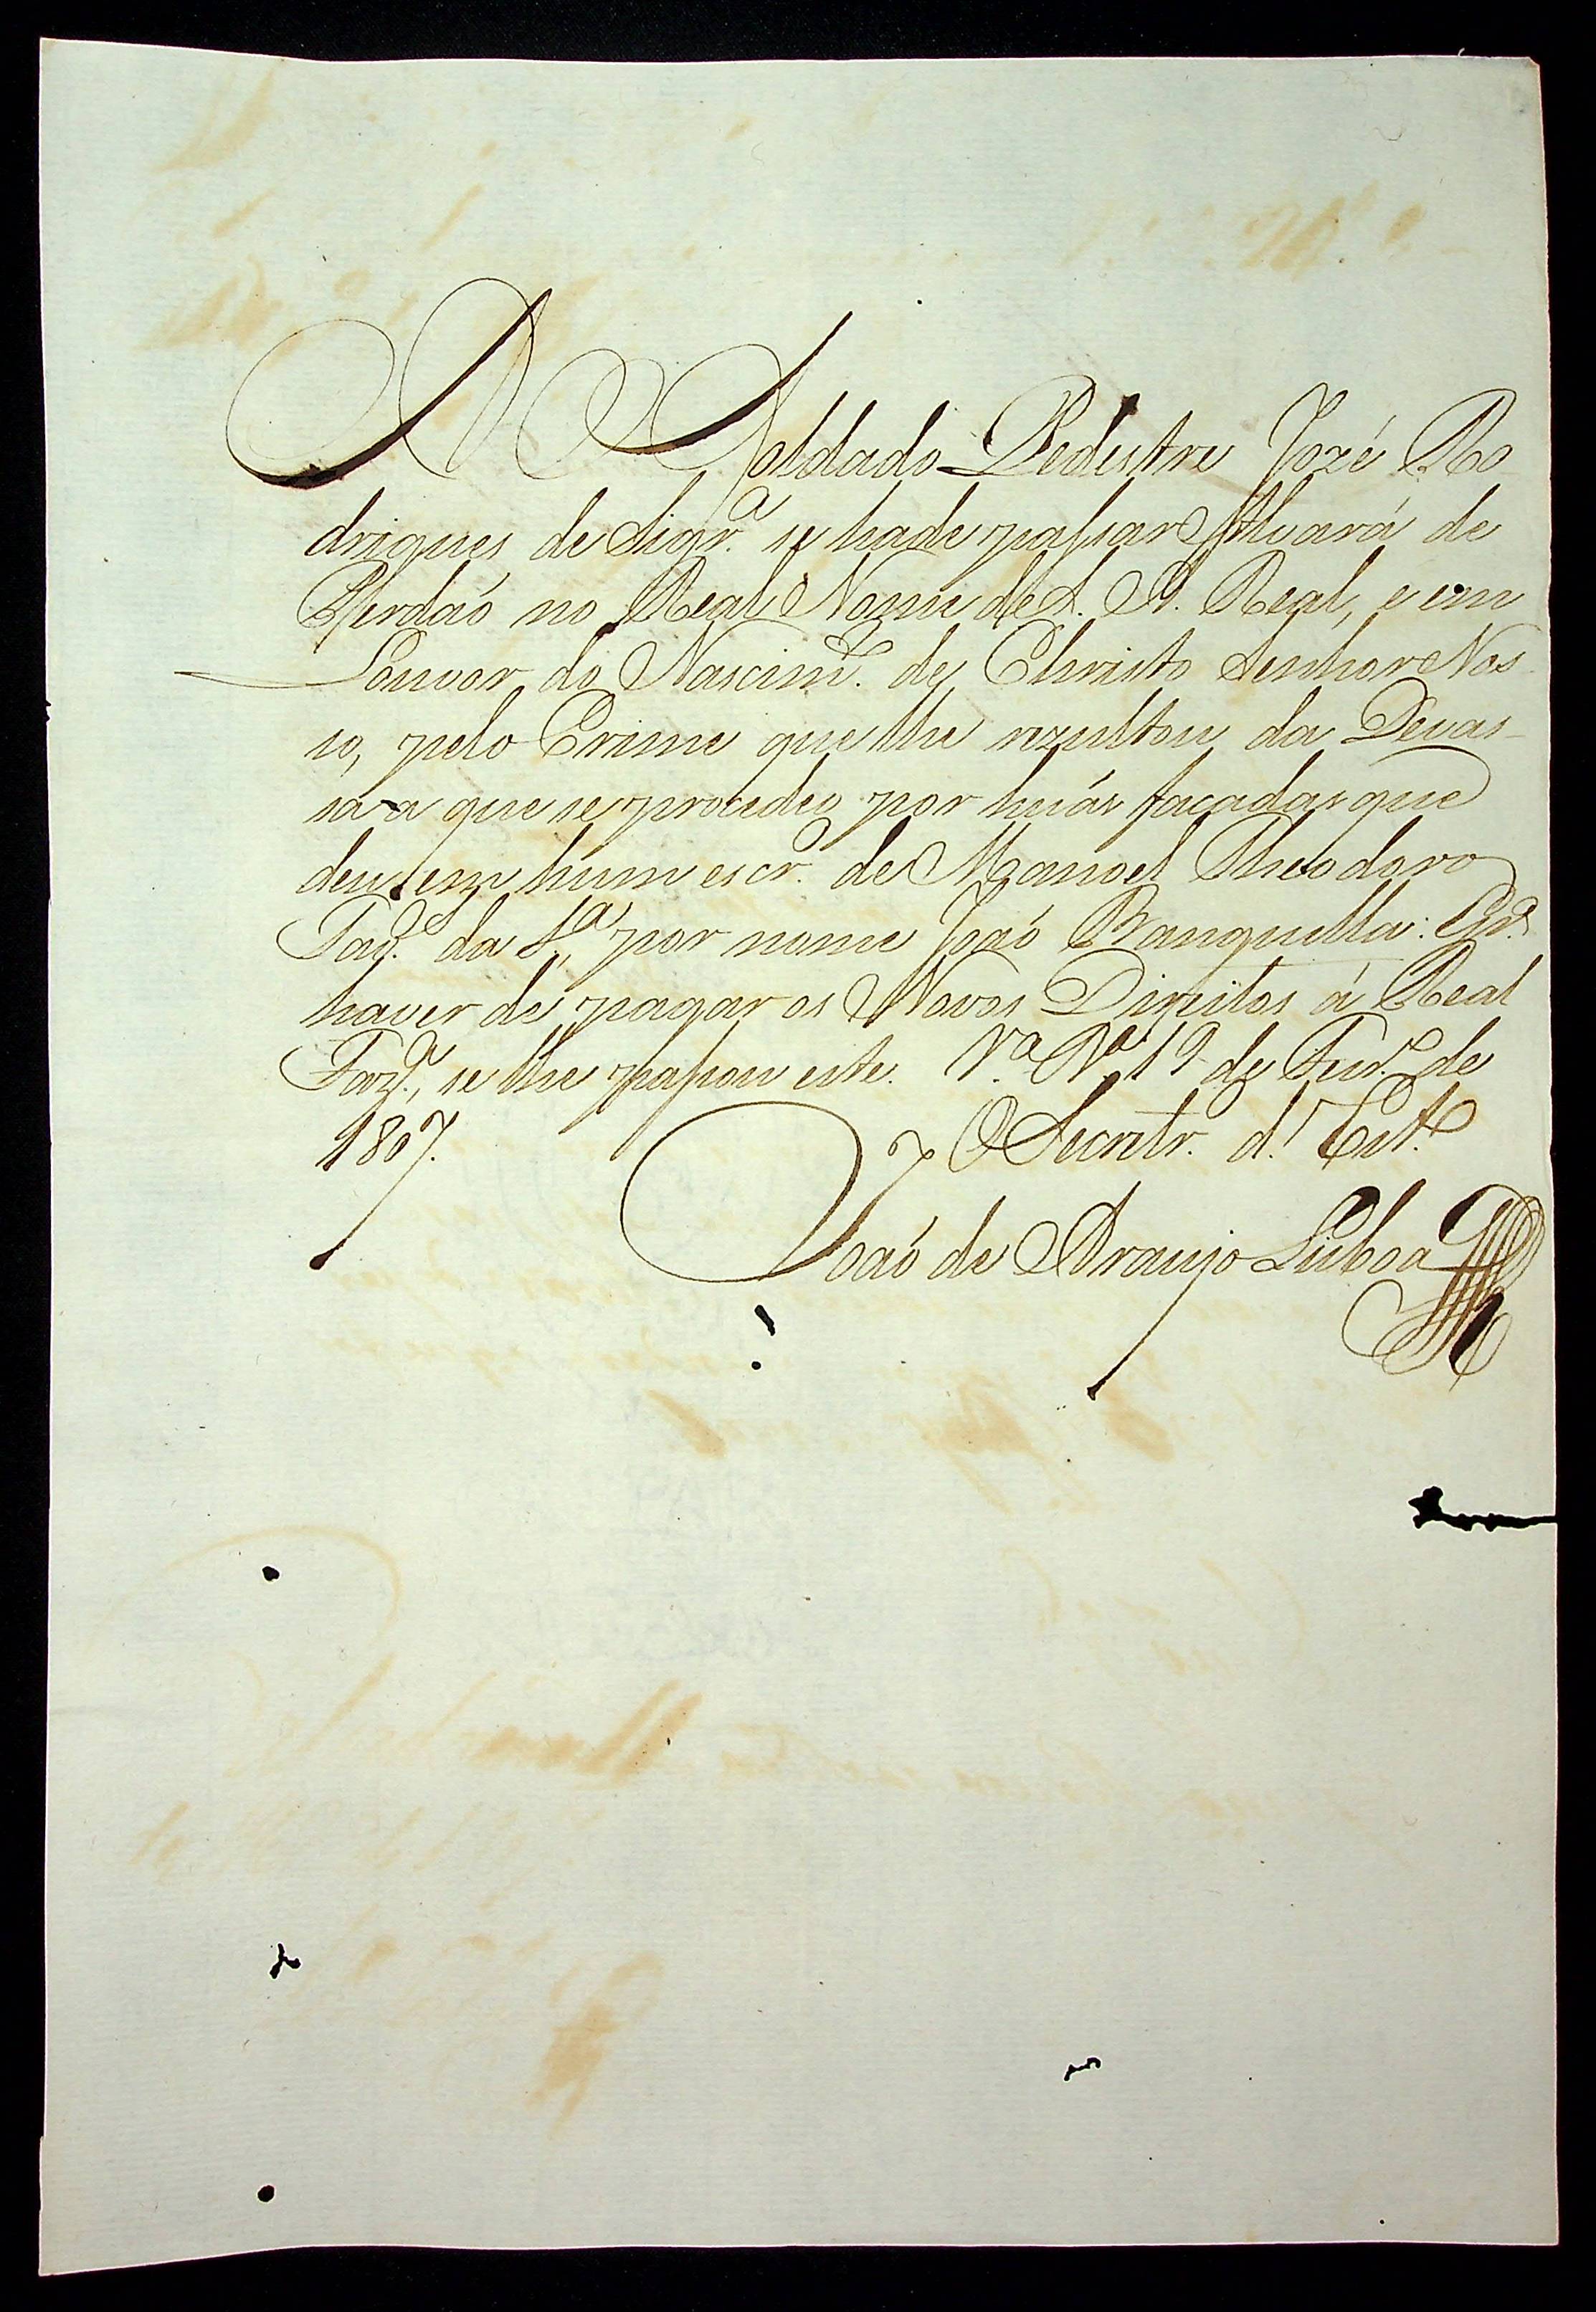 A Soldado Pedestre Jozé Ro
drigues de Siqr.ª se hade passar Alvará de
Perdaõ no Real Nome de S. A. Real, e em
Louvor do Nascim.to de Christo Senhor Nos
so, pelo Crime que lhe rezultou da Devas-
sa a que se procedeo por huãs facadas que
deu em hum escr.o de Manoel Theodoro
da S.ª, por nome Joaõ Banguella: E p.ª
haver de pagar os Novos Direitos á Real
Faz.da, se lhe passou este. V.ª B.ª 19 de Fevr.o de
1807.
O Secretr. d.
Joaõ de Araujo Lisboa